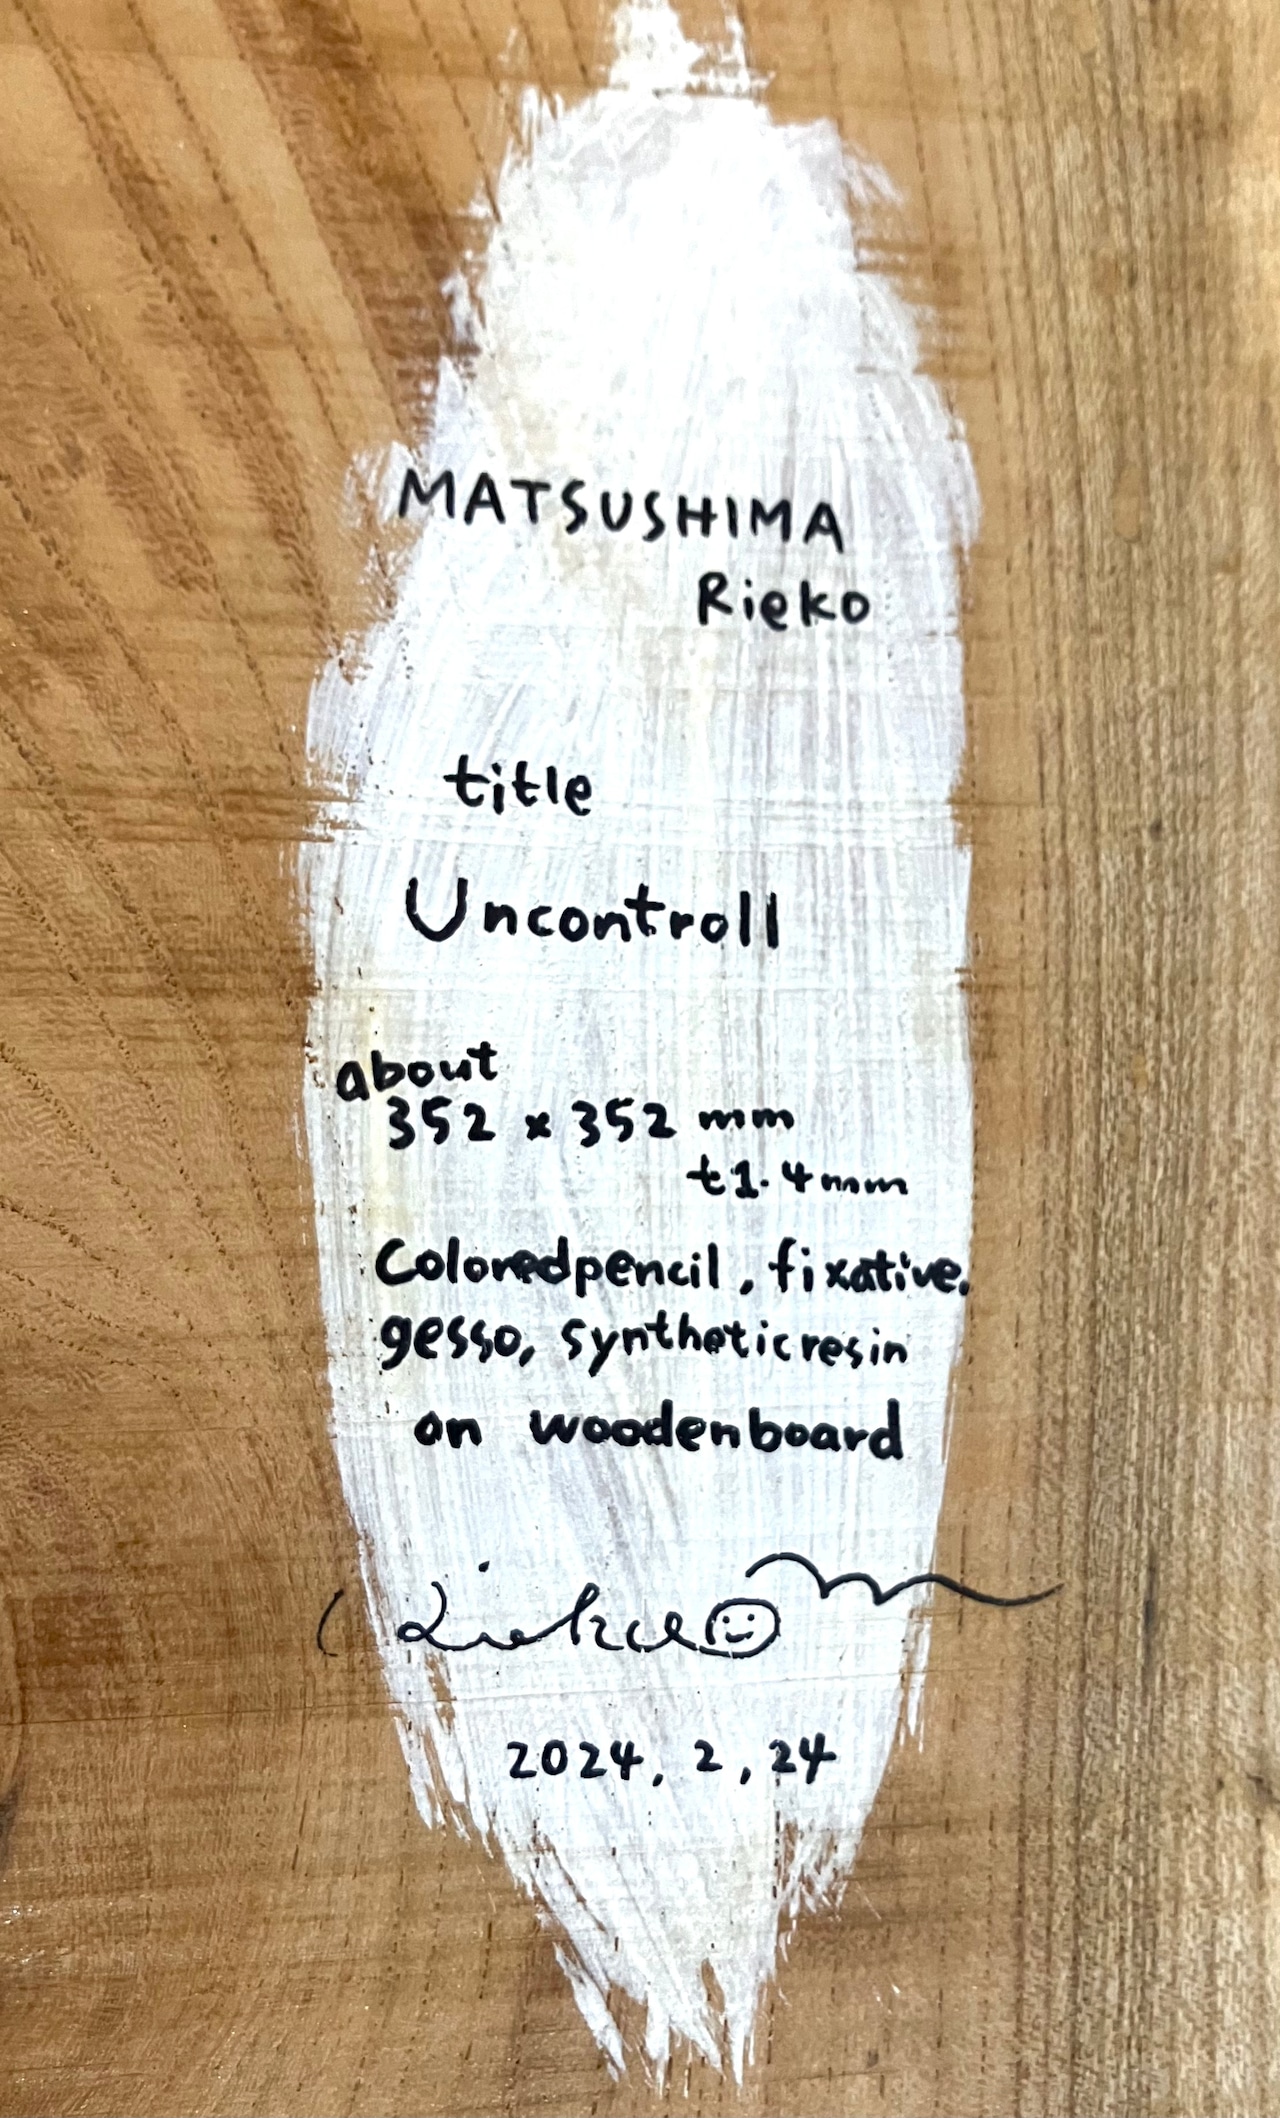 MATSUSHIMA
Rieko
title
Uncontroll
about
352 × 352 mm
t1.4mm
Coloredpencil, fixative,
gesso, syntheticresin
on woodenboard
2024, 2, 24